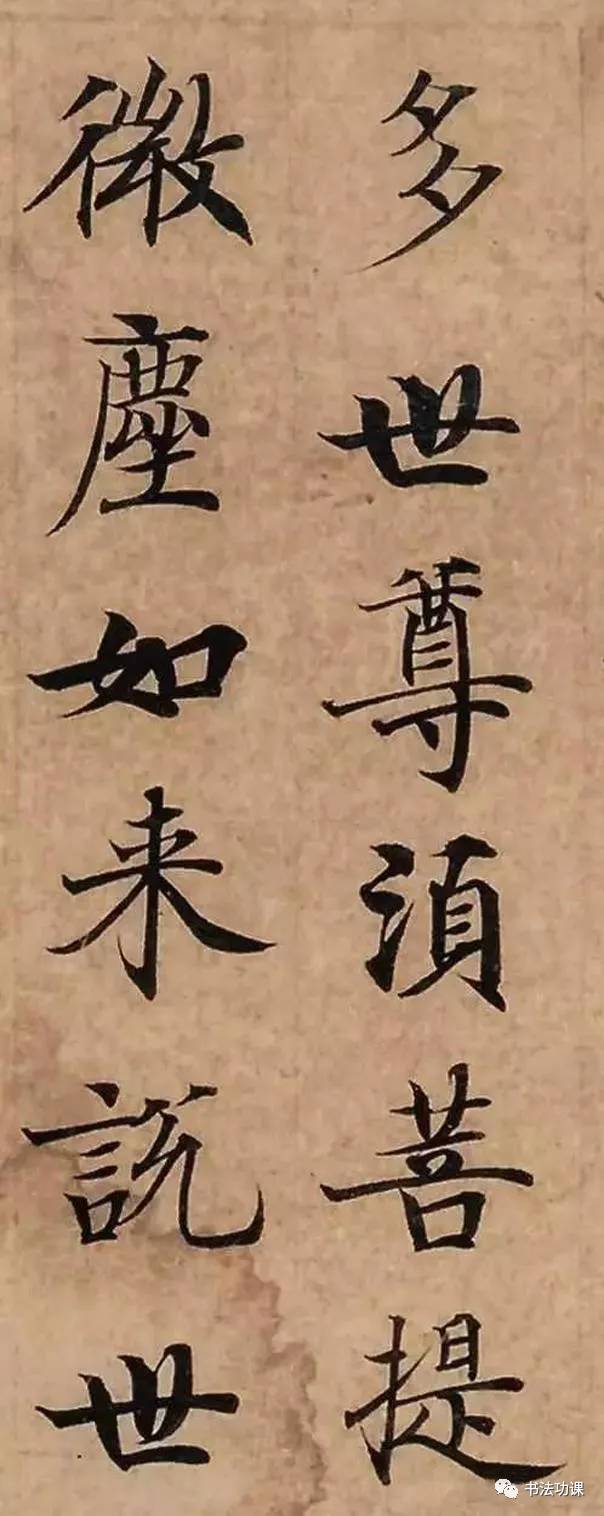 多世尊須菩提
微塵如来説世
书法功课